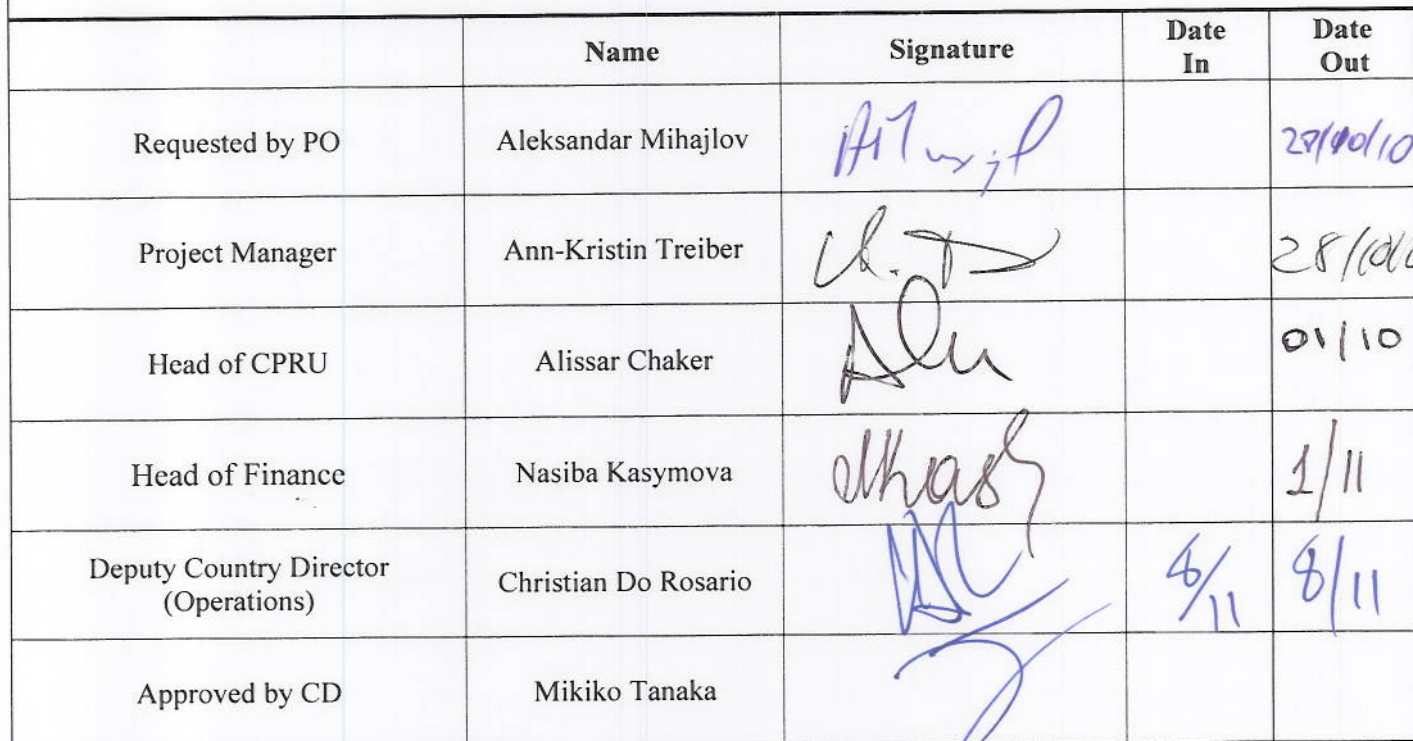 Name Signature Date In Date Out
Requested by PO Aleksandar Mihajlov
Project Manager Ann-Kristin Treiber
Head of CPRU Alissar Chaker 01/10
Head of Finance Nasiba Kasymova 1/11
Deputy Country Director
(Operations) Christian Do Rosario 8/11 8/11
Approved by CD Mikiko Tanaka